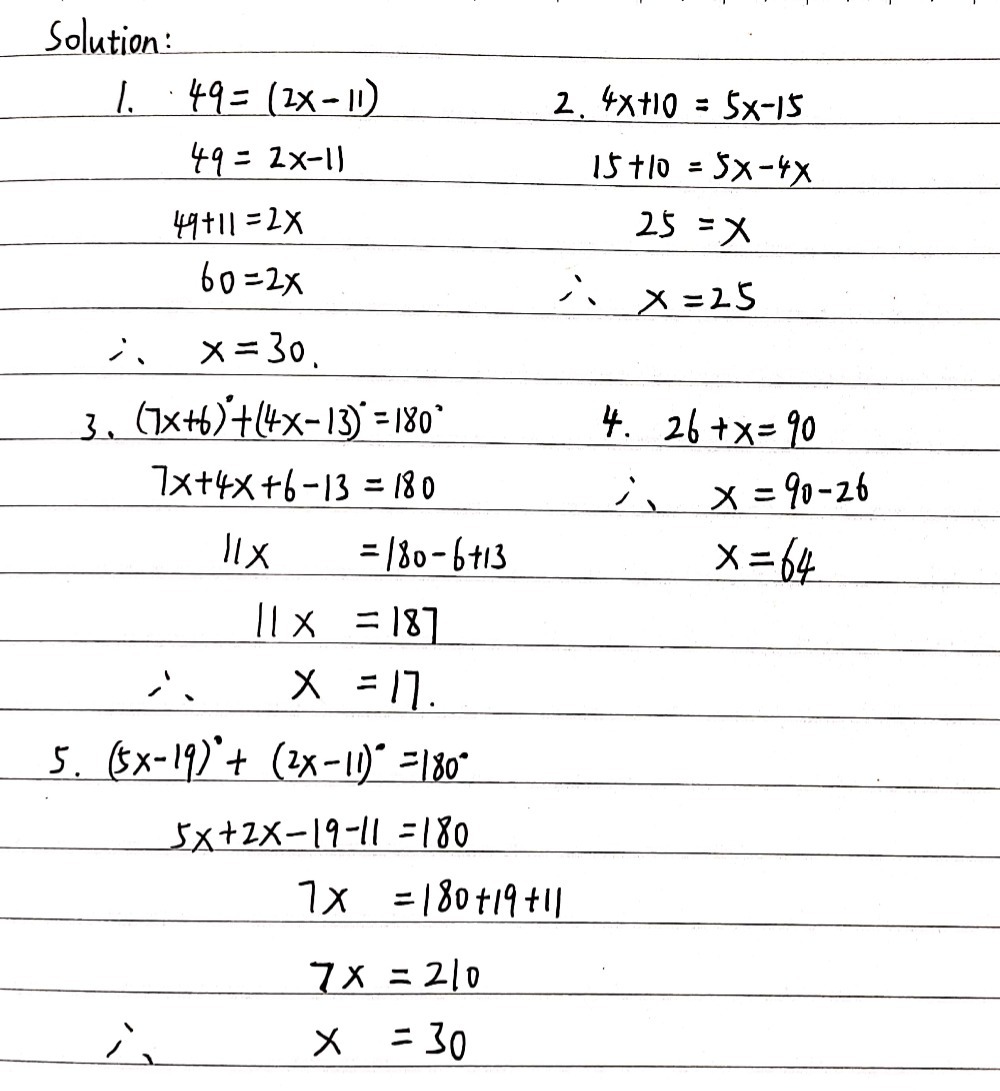 Solution:
1. 49 = (2x-11)
49 = 2x-11
49+11 = 2x
60 = 2x
∴ x = 30.
2. 4x+10 = 5x-15
15+10 = 5x-4x
25 = x
∴ x = 25
3. (7x+6)°+(4x-13)° = 180°
7x+4x+6-13 = 180
11x = 180-6+13
11x = 187
∴ x = 17.
4. 26+x = 90
∴ x = 90-26
x = 64
5. (5x-19)°+ (2x-11)° = 180°
5x+2x-19-11 = 180
7x = 180+19+11
7x = 210
∴ x = 30